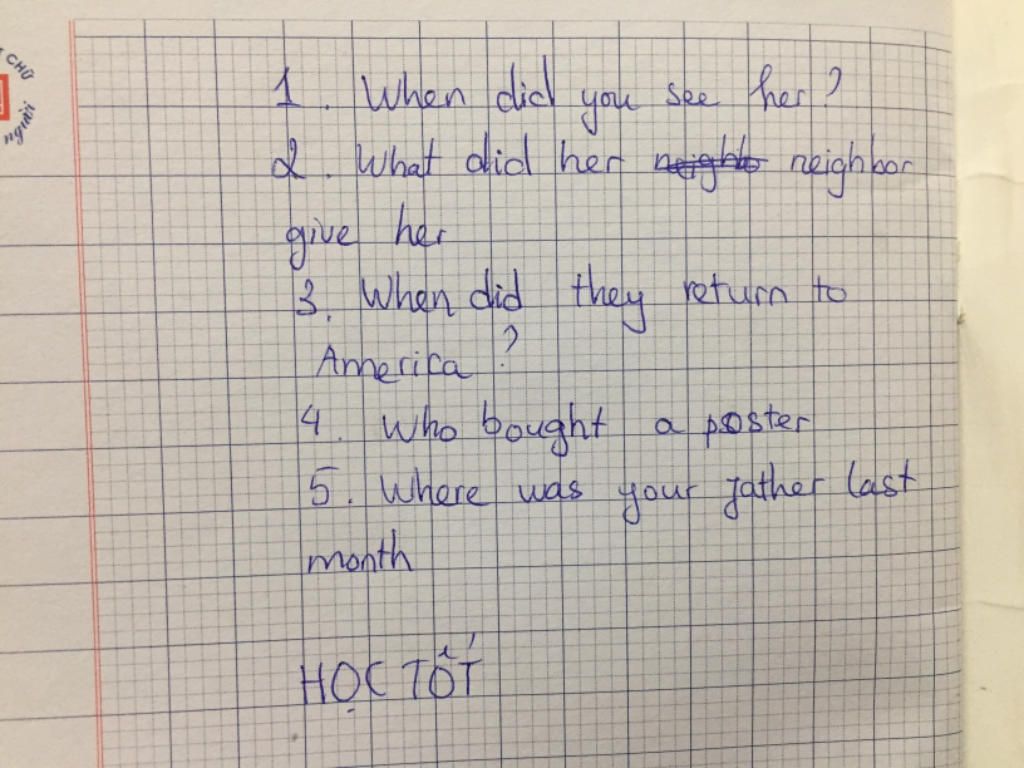 T CHỮ
người
1. When did you see her?
2. What did her neighbor
give her
3. When did they return to
America?
4. Who bought a poster
5. Where was your father last
month
HỌC TỐT